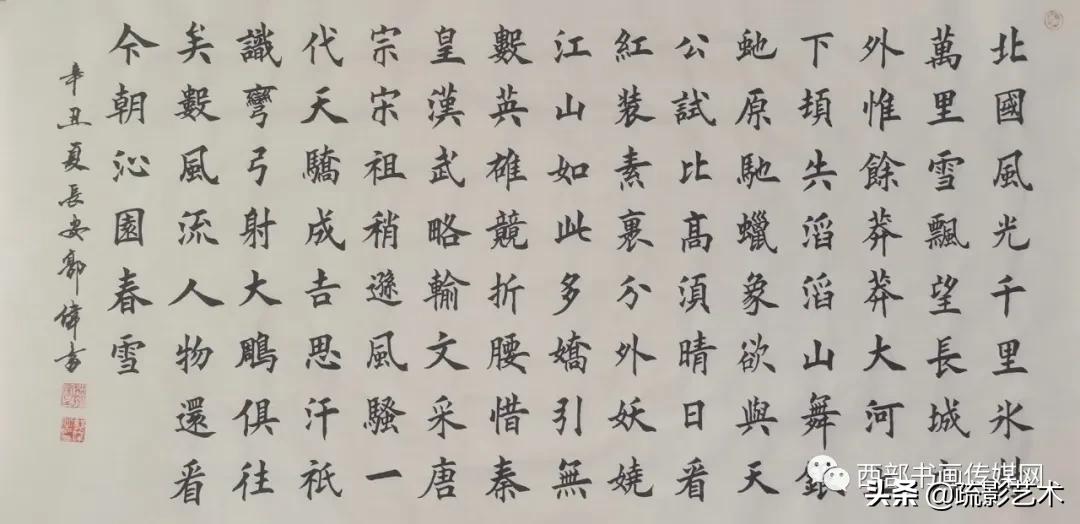 北國風光千里氷
萬里雪飄望長城
外惟餘莽莽大河
下頓失滔滔山舞銀
虵原馳蠟象欲與天
公試比髙須晴日看
紅裝素裹分外妖嬈
江山如此多嬌引無
數英雄競折腰惜秦
皇漢武略輸文采唐
宗宋祖稍遜風騷一
代天驕成吉思汗祇
識彎弓射大鵰俱往
矣數風流人物還看
今朝沁園春雪
辛丑夏長安郭偉書
西部书画传媒网
头条@疏影艺术